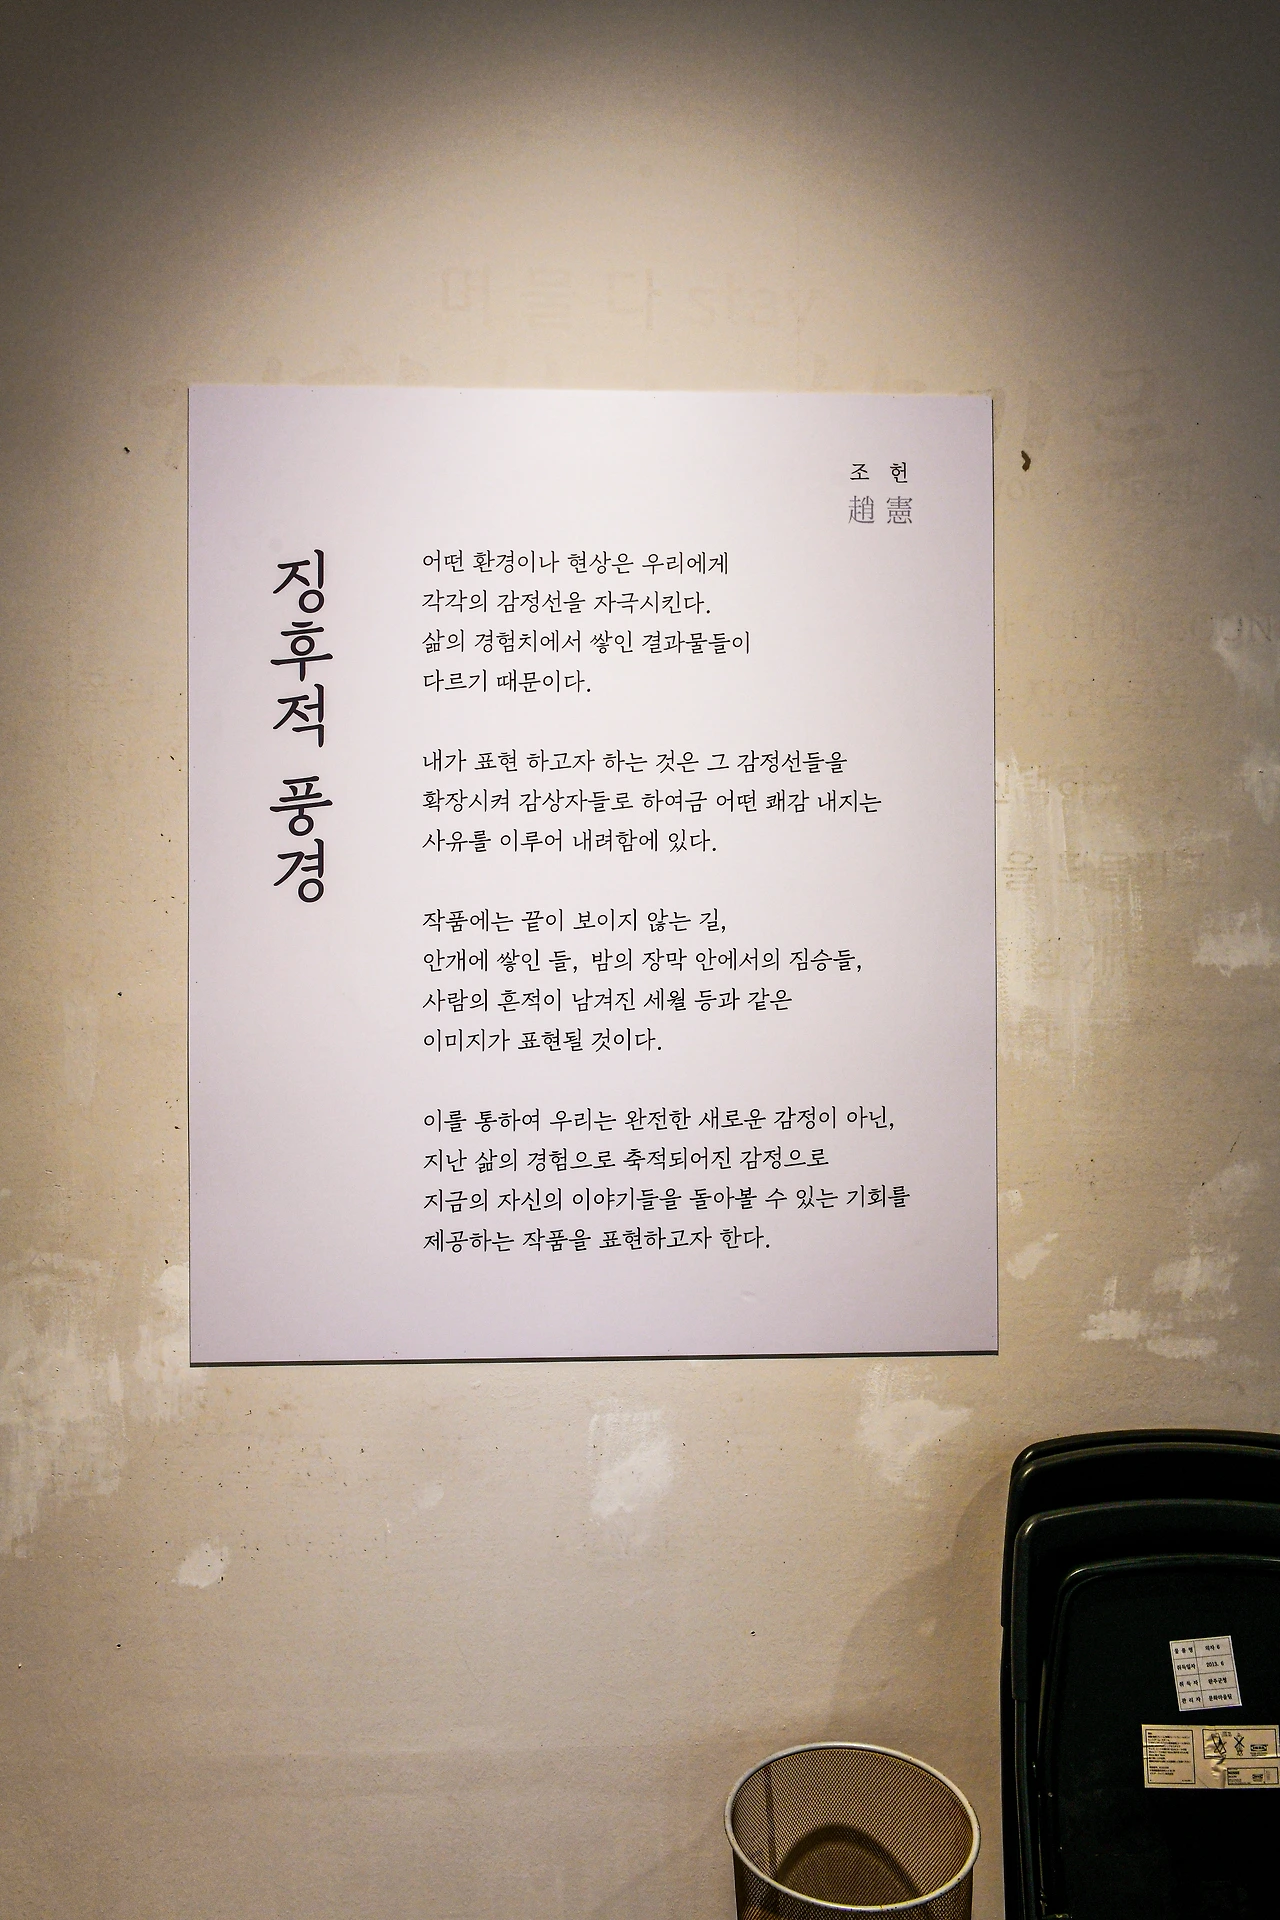 조 헌
趙 憲
징후적 풍경
어떤 환경이나 현상은 우리에게
각각의 감정선을 자극시킨다.
삶의 경험치에서 쌓인 결과물들이
다르기 때문이다.
내가 표현 하고자 하는 것은 그 감정선들을
확장시켜 감상자들로 하여금 어떤 쾌감 내지는
사유를 이루어 내려함에 있다.
작품에는 끝이 보이지 않는 길,
안개에 쌓인 들, 밤의 장막 안에서의 짐승들,
사람의 흔적이 남겨진 세월 등과 같은
이미지가 표현될 것이다.
이를 통하여 우리는 완전한 새로운 감정이 아닌,
지난 삶의 경험으로 축적되어진 감정으로
지금의 자신의 이야기들을 돌아볼 수 있는 기회를
제공하는 작품을 표현하고자 한다.
물 품 명 의자 6
취득일자 2013. 6
취 득 자 완주군청
관 리 자